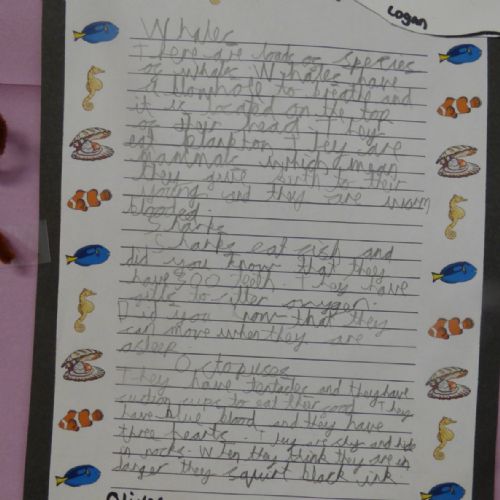 Logan
Whales
There are loads of species
of whales Whales have
a blowhole to breathe and
it is located on the top
of their head They
eat plankton They are
mammals which mean
they give birth to their
young and they are warm
blooded.
Sharks
Sharks eat fish and
did you know that they
have 300 teeth. They have
gills to filter oxygen.
Did you know that they
can move when they are
asleep
Octopuses
They have tentacles and they have
suction cups to eat ther food. They
have blue blood and they have
three hearts. They are shy and hide
in rocks. When they think they are in
danger they squirt black ink